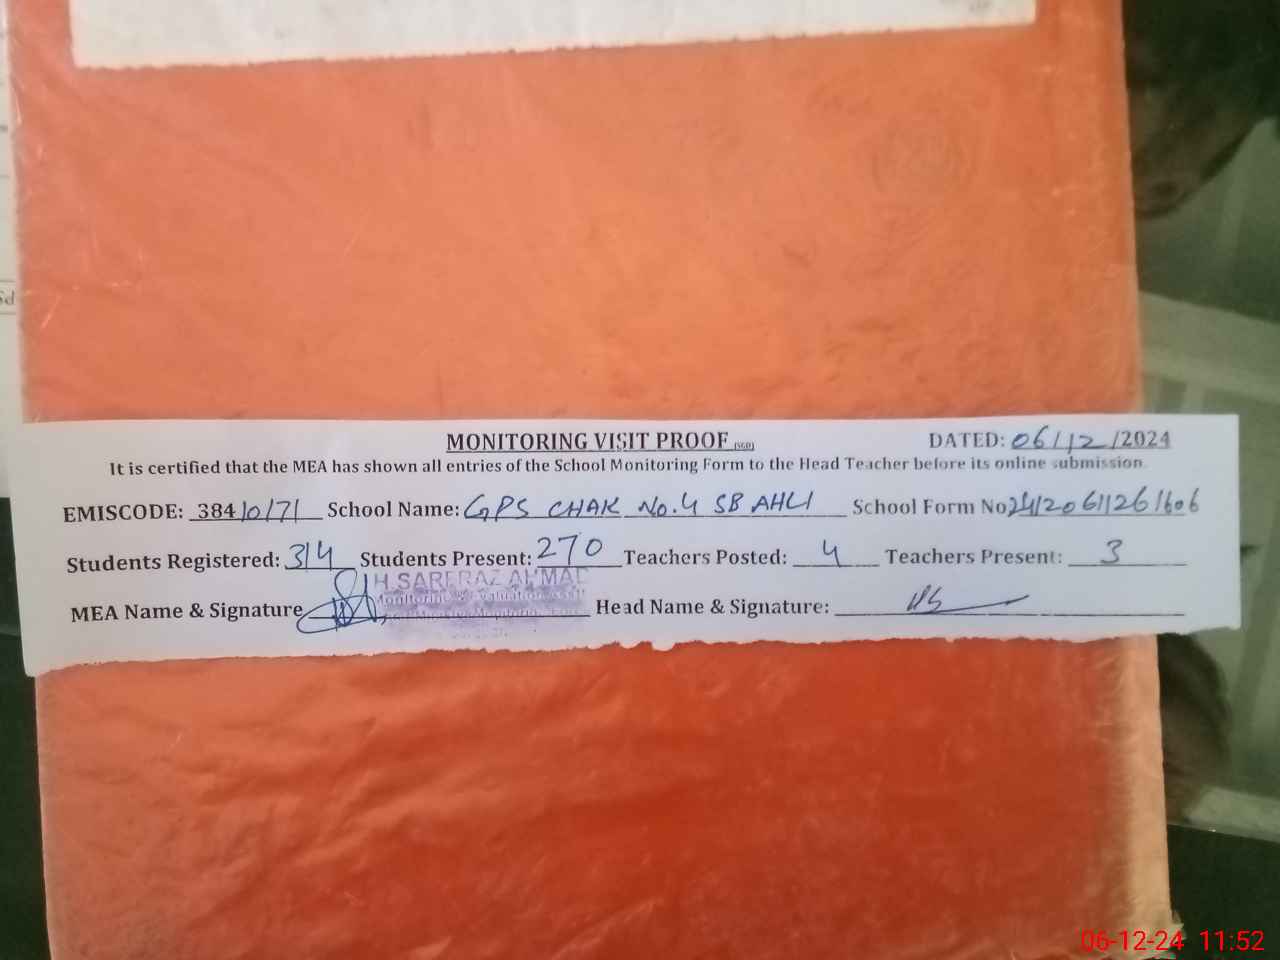 MONITORING VISIT PROOF (SGD) DATED: 06/12/2024
It is certified that the MEA has shown all entries of the School Monitoring Form to the Head Teacher before its online submission.
EMISCODE: 38410171 School Name: GPS CHAK No.4 SB AHLI School Form No 241206112611606
Students Registered: 314 Students Present: 270 Teachers Posted: 4 Teachers Present: 3
H.SARFRAZ AHMAD
Monitoring & Evaluation Asstt
MEA Name & Signature Head Name & Signature:
Sd
06-12-24 11:52